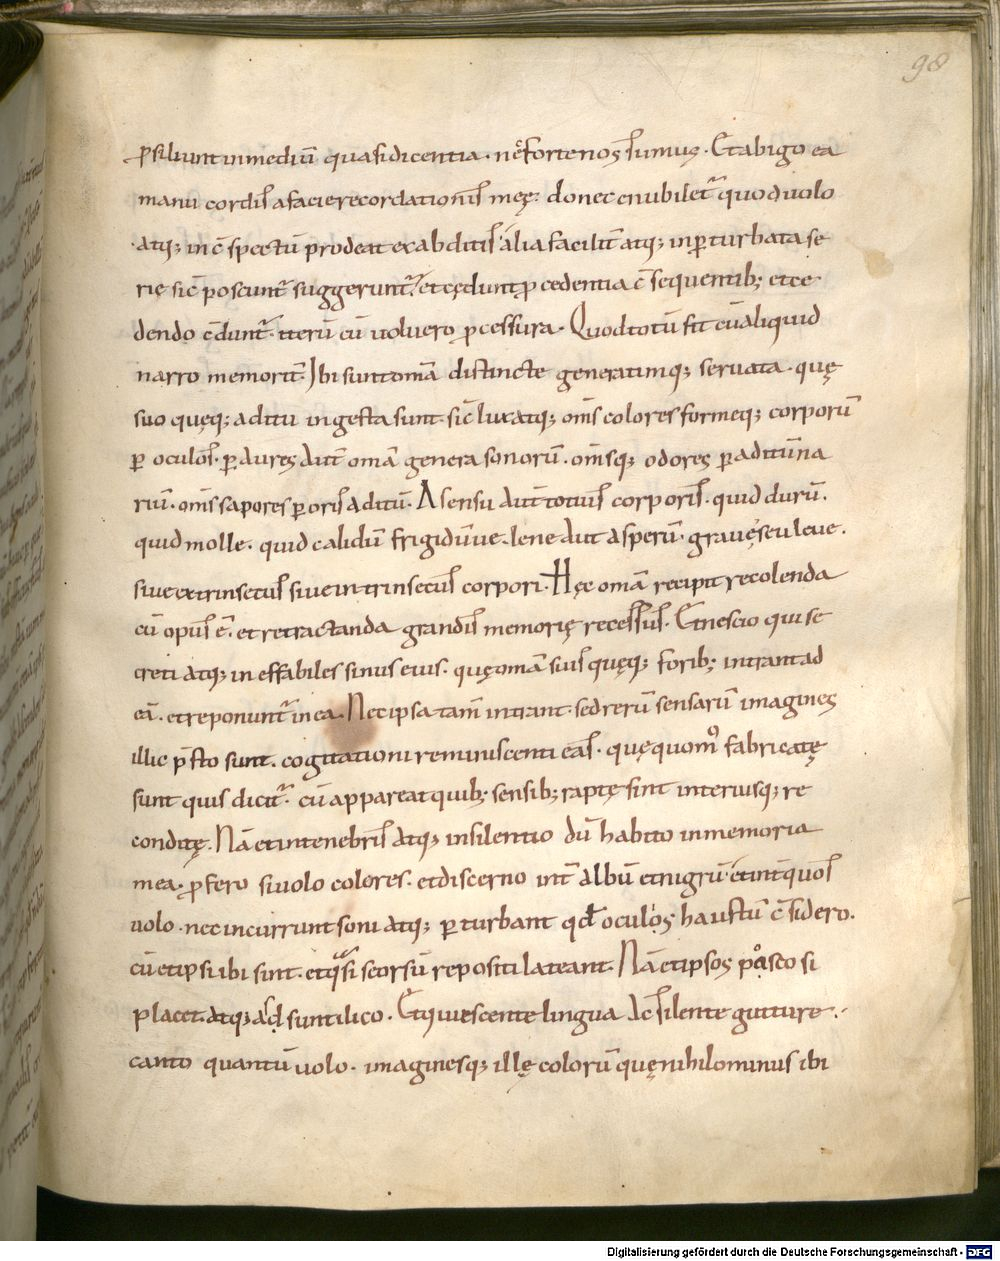 98
ꝓsiliunt inmediū quasidicentia · nefortenossumus · Et abigo ea
manu cordis afacie recordationis meę · donec enubilet᷑ quod volo
atq; in cspectū prodeat exabditis · alia facilit atq; inꝑturbata se
rie sic poscunt᷑ suggerunt᷑ · et cędunt ꝓcedentia c̄ sequentib; et ce
dendo cdunt᷑ · iterū cū voluero ꝓcessura · Quod totū fit cū aliquid
narro memorit · Ibi sunt omā distincte generatimq; servata · quę
suo quęq; aditu ingesta sunt · sic lux atq; oms colores formęq; corporū
ꝑ oculos · ꝑ aures aut omā genera sonorū · omsq; odores ꝑ aditū na
riū · oms sapores ꝑ oris aditū · A sensu aut totius corporis · quid durū ·
quid molle · quid calidū frigidūve · lene aut asperū · grave seu leve ·
sive extrinsecus sive intrinsecus corpori · Hęc omā recipit recolenda
cū opus ē · et retractanda grandis memorię recessus · Et nescio qui se
creti atq; ineffabiles sinus eius · quę omā suis quęq; forib; intrant ad
eā · et reponunt᷑ in ea · Nec ipsa tam intrant · sed rerū sensarū imagines
illic p̄sto sunt · cogitationi reminiscenti eas · quę quomo fabricatę
sunt quis dicit᷑ · cū appareat quib; sensib; raptę sint interiusq; re
conditę · Nā et intenebris atq; insilentio dū habito inmemoria
mea · ꝓfero sivolo colores · et discerno int albū et nigrū et int quos
volo · nec incurrunt soni atq; ꝑturbant qd oculos haustū csidero ·
cū et ipsi ibi sint · et q̄si seorsū repositi lateant · Nā et ipsos posco si
placet atq; adsunt ilico · Et quiescente lingua ac silente gutture ·
canto quantū volo · imaginesq; illę colorū quę nihilominus ibi
Digitalisierung gefördert durch die Deutsche Forschungsgemeinschaft - DFG